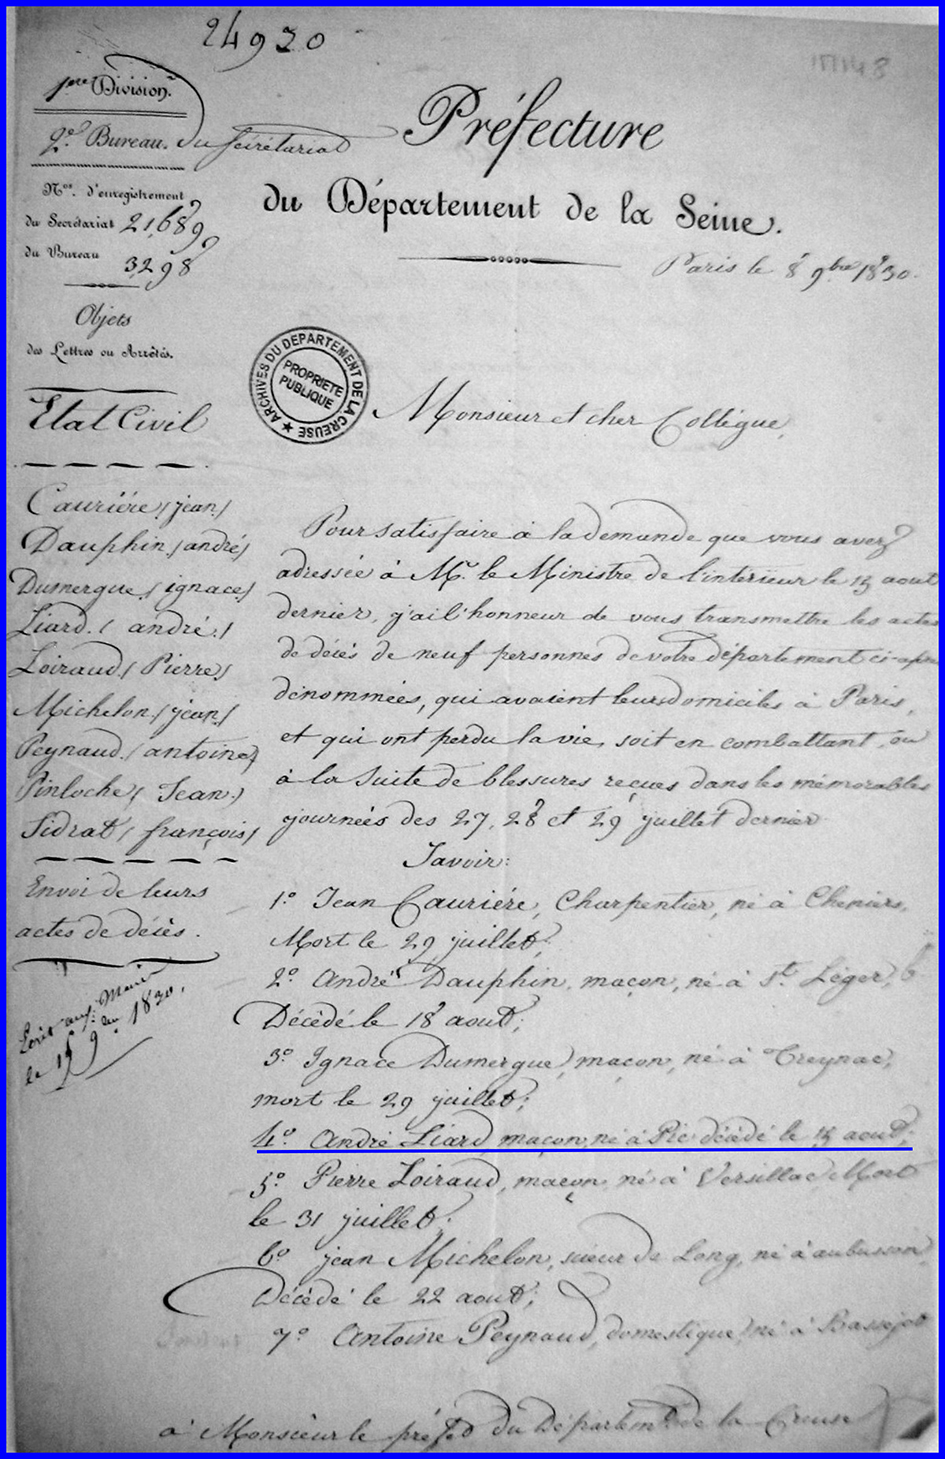 24920
1ère Division.
2e. Bureau. du Secrétariat
Nos. d'enregistrement
du Secrétariat 21,689
du Bureau 3298
Objets
des Lettres ou Arrêtés.
Etat Civil
Cauriére (jean)
Dauphin (andré)
Dumergue (ignace)
Liard. (andré.)
Loiraud (Pierre)
Michelon (jean)
Peynaud (antoine)
Pinloche (Jean)
Sidrat (françois)
Envoi de leurs
actes de décès.
le 15 9bre 1830.
Préfecture
du Département de la Seine.
Paris le 8 9bre 1830.
ARCHIVES DU DEPARTEMENT DE LA CREUSE
PROPRIETE
PUBLIQUE
Monsieur et cher Collègue,
Pour satisfaire à la demande que vous avez
adressée à Mr. le Ministre de l'intérieur le 15 aout
dernier, j'ai l'honneur de vous transmettre les actes
de décès de neuf personnes de votre département ci-après
dénommées, qui avaient leurs domiciles à Paris,
et qui ont perdu la vie, soit en combattant, ou
à la suite de blessures reçues dans les mémorables
journées des 27, 28 et 29 juillet dernier
Savoir:
1.° Jean Cauriére, Charpentier, né à Cheniers,
Mort le 29 juillet;
2.° André Dauphin, maçon, né à St. Léger,
Décédé le 18 aout;
3.° Ignace Dumergue, maçon, né à Treynac,
mort le 29 juillet;
4.° André Liard, maçon, né à Pie décédé le 15 aout;
5.° Pierre Loiraud, maçon, né à Versillac Mort
le 31 juillet;
6.° jean Michelon, scieur de Long, né à aubusson,
Décédé le 22 aout;
7.° Antoine Peynaud, domestique, né à
à Monsieur le préfet du Départemt. de la Creuse